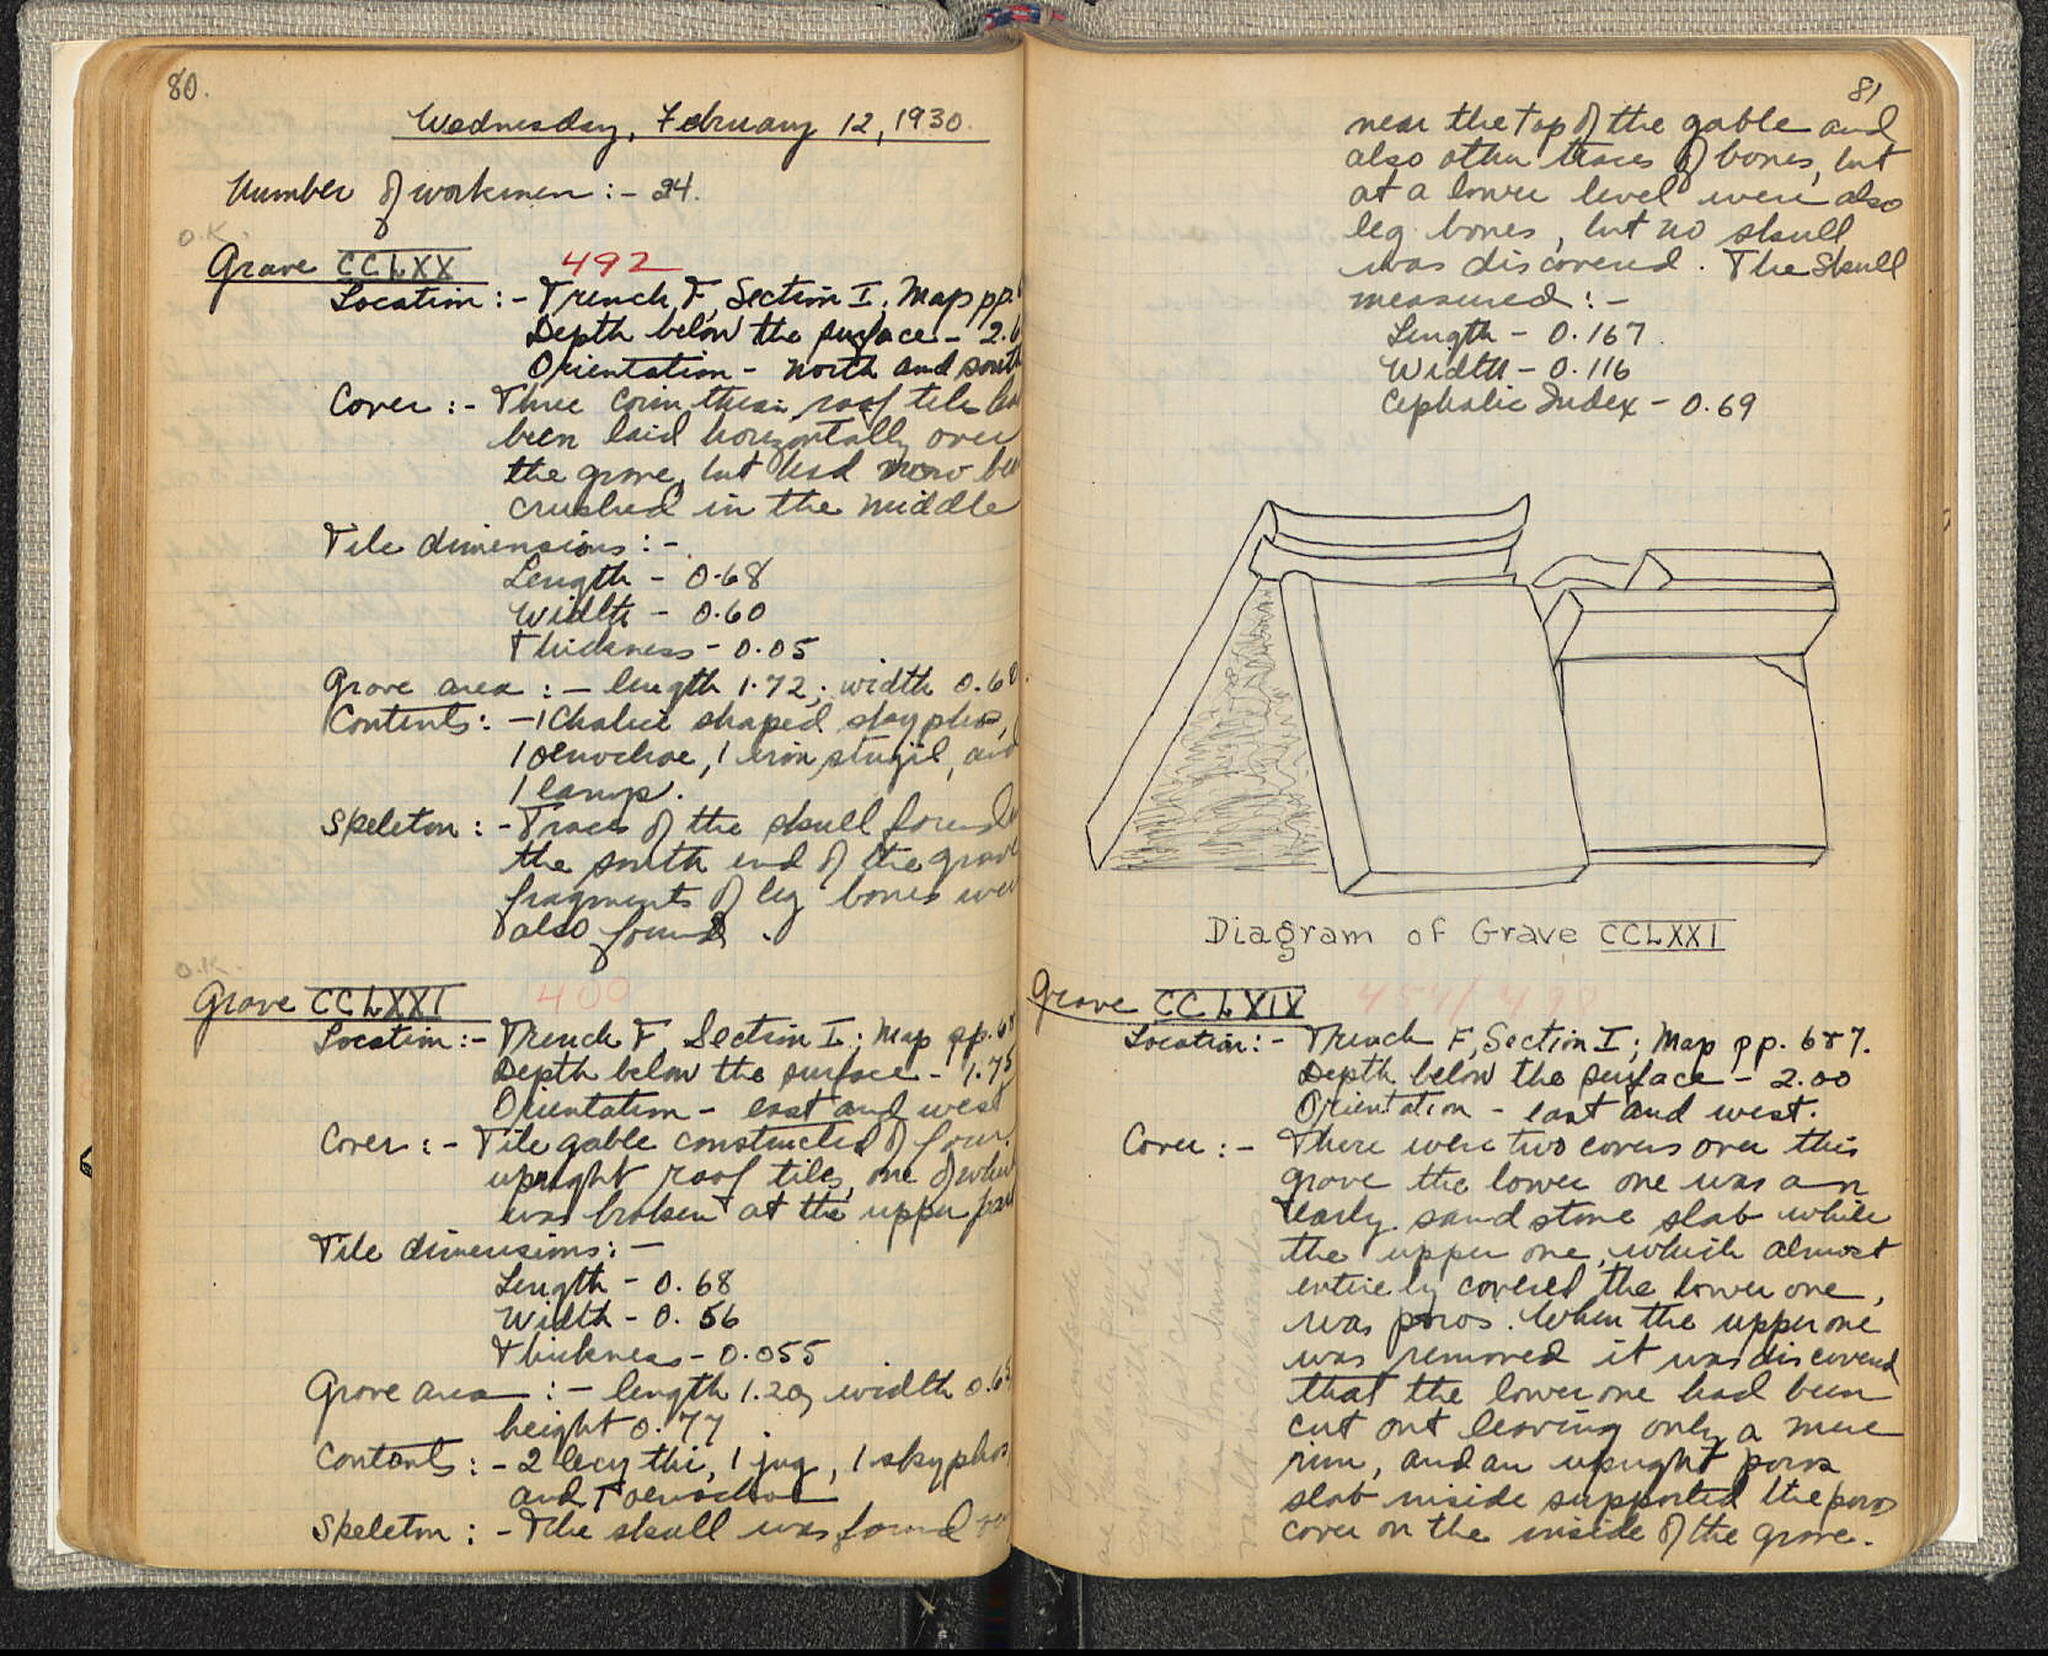 80.
Wednesday, February 12, 1930.
Number of workmen :- 24.
O.K.
Grave CCLXX 492
Location :- Trench F, Section I; Map pp.
Depth below the surface - 2.6
Orientation - North and south
Cover :- Three Corinthian roof tiles had
been laid horizontally over
the grave, but had now been
crushed in the middle
Tile dimensions :-
Length - 0.68
Width - 0.60
Thickness - 0.05
Grave area :- length 1.72; width 0.60
Contents :- 1 Chalice shaped skyphos,
1 oenochoe, 1 iron strigil, and
1 lamp.
Skeleton :- Traces of the skull found
the south end of the grave
fragments of leg bones were
also found.
O.K.
Grave CCLXXI 400
Location :- Trench F, Section I; Map pp. 6
Depth below the surface - 1.75
Orientation - east and west
Cover :- Tile gable constructed of four
upright roof tiles, one of which
was broken at the upper part
Tile dimensions :-
Length - 0.68
Width - 0.56
Thickness - 0.055
Grave area :- length 1.20, width 0.6
height 0.77
Contents :- 2 lecythi, 1 jug, 1 skyphos
and 1 oenochoe
Skeleton :- The skull was found
81
near the top of the gable and
also other traces of bones, but
at a lower level were also
leg bones, but no skull
was discovered. The skull
measured :-
Length - 0.167
Width - 0.116
Cephalic Index - 0.69
Diagram of Grave CCLXXI
Grave CCLXIX
Location :- Trench F, Section I; Map pp. 6 & 7.
Depth below the surface - 2.00
Orientation - east and west.
Cover :- There were two covers over this
grave the lower one was an
early sandstone slab while
the upper one, which almost
entirely covered the lower one,
was poros. When the upper one
was removed it was discovered
that the lower one had been
cut out leaving only a mere
rim, and an upright poros
slab inside supported the poros
cover on the inside of the grave.